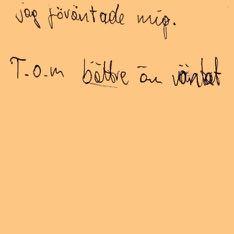 jag förväntade mig.
T.o.m bättre än väntat